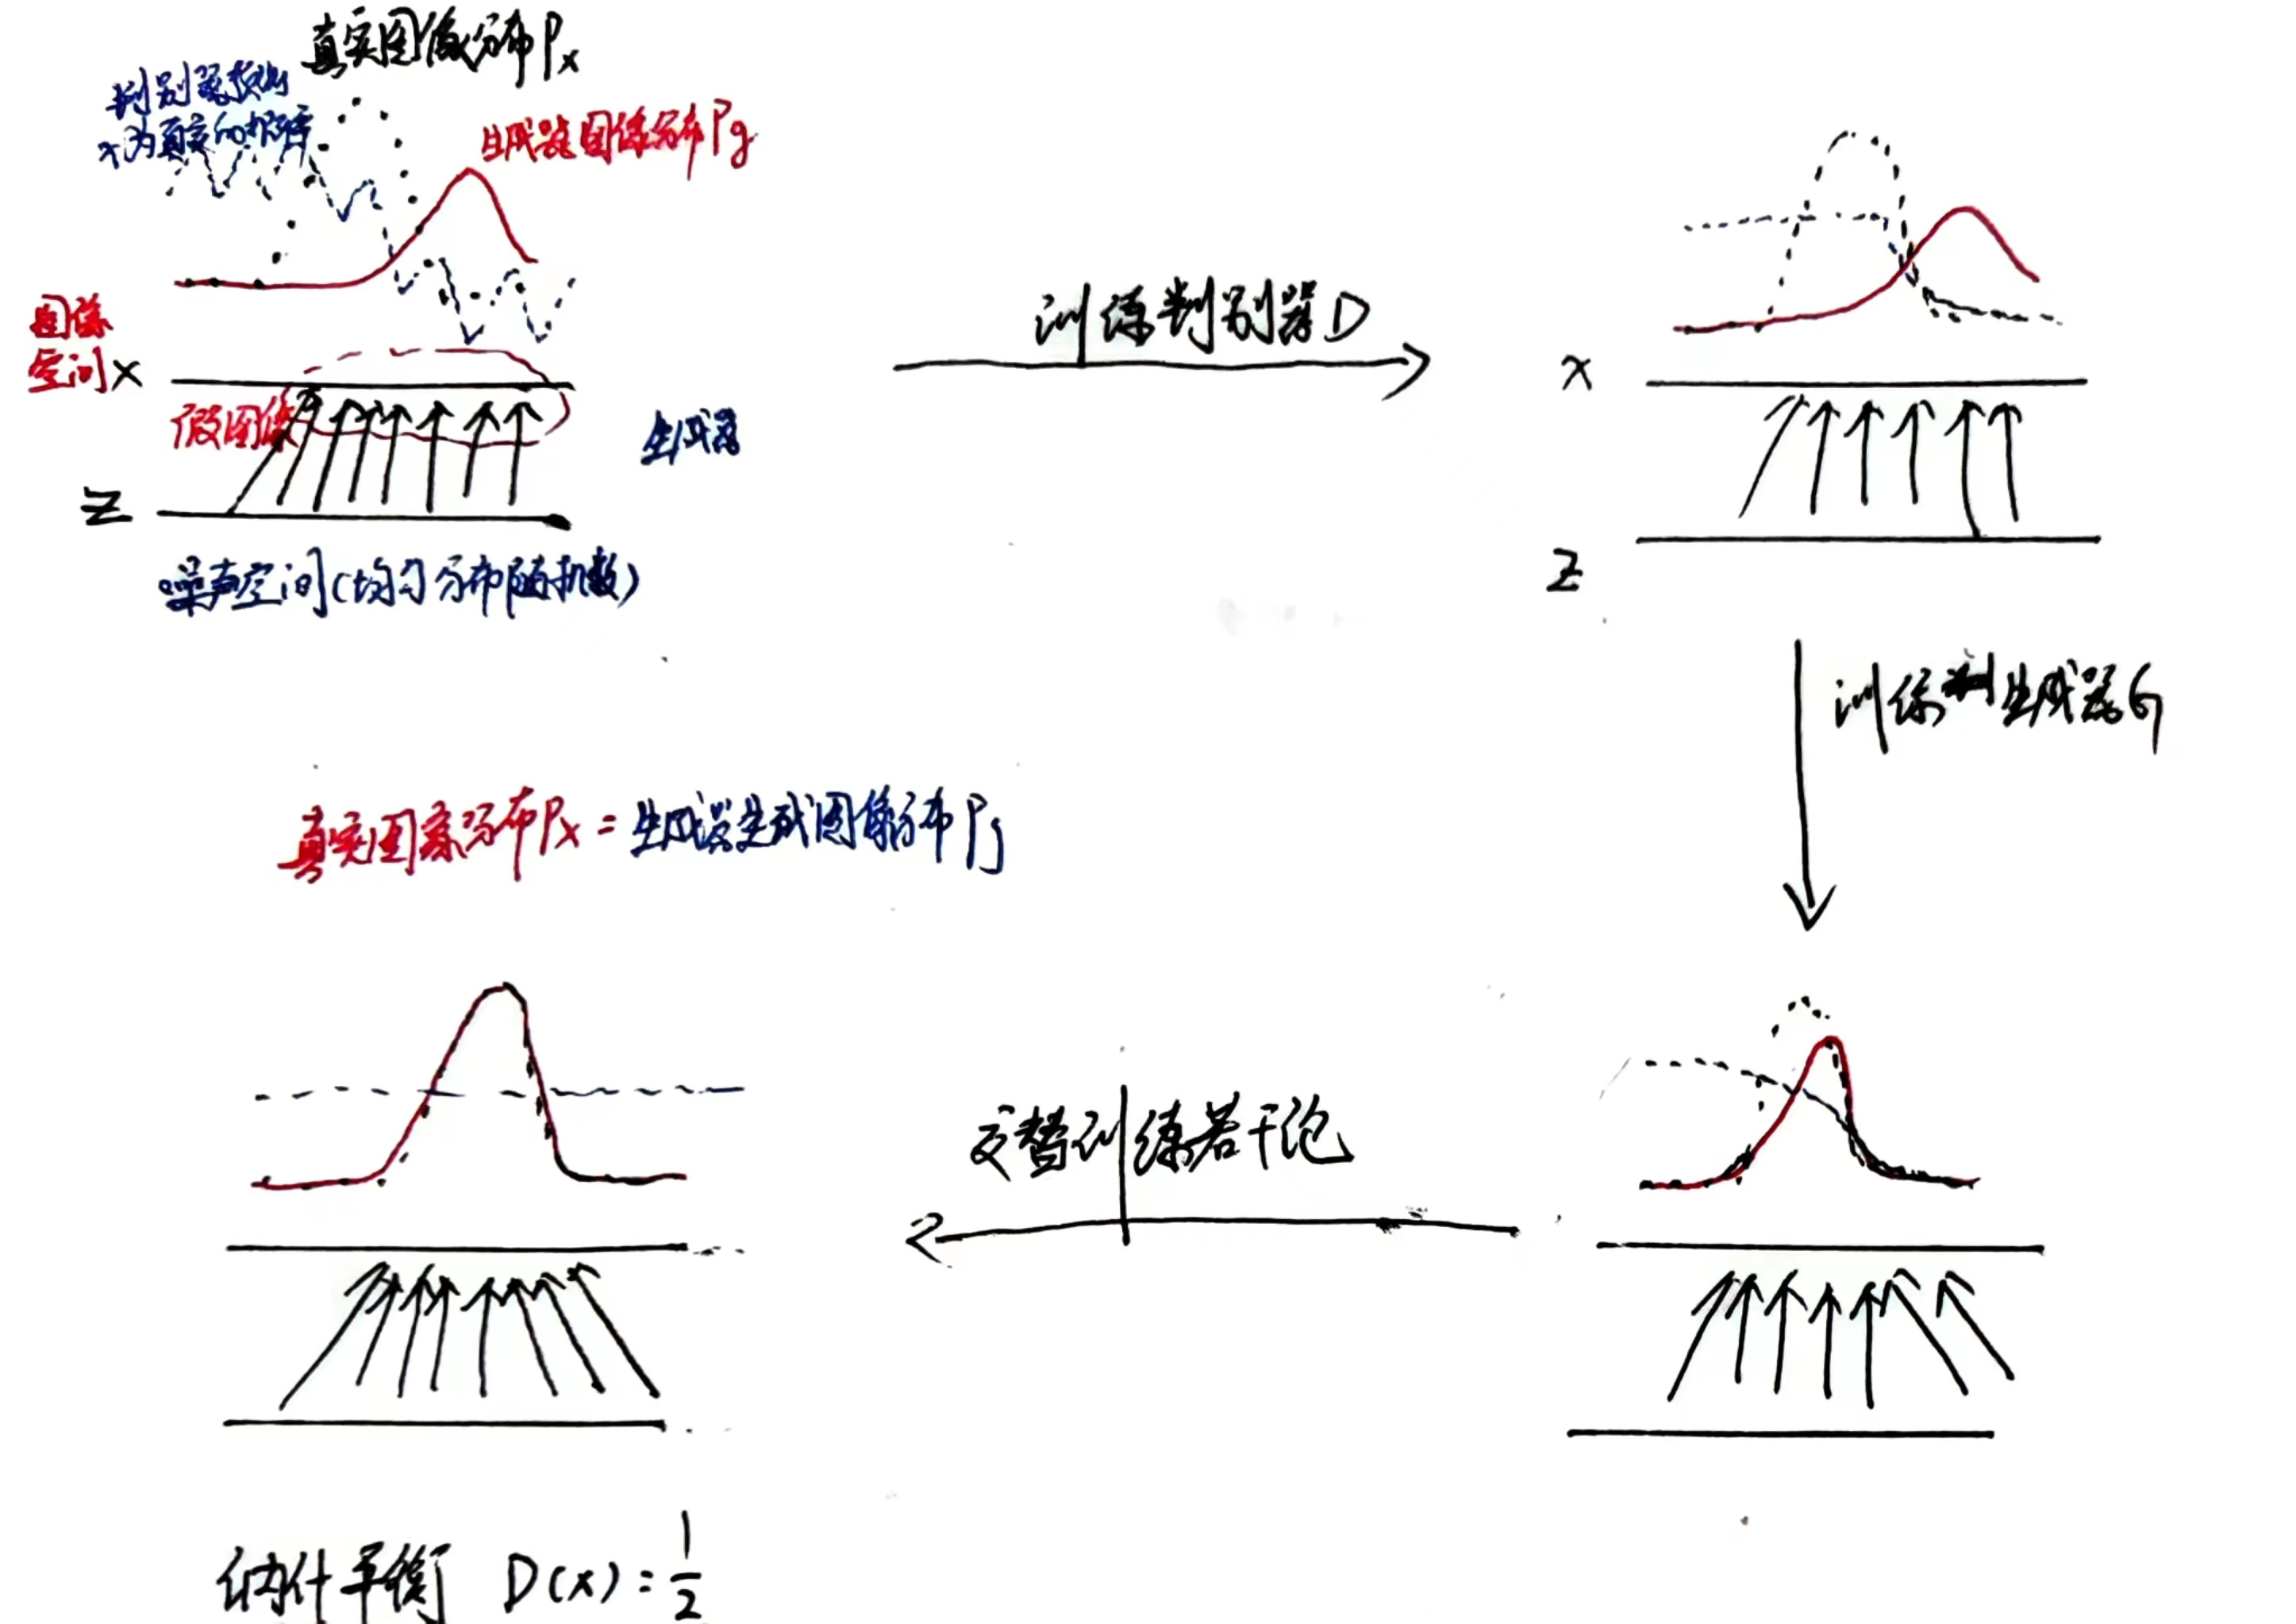 真实图像分布Px
判别器预测
x为真实的概率
生成器图像分布Pg
图像
空间X
假图像
生成器
Z
噪声空间(均匀分布随机数)
训练判别器D
X
Z
训练生成器G
真实图像分布Px=生成器生成图像分布Pg
交替训练若干论
纳什平衡 D(x)=1/2